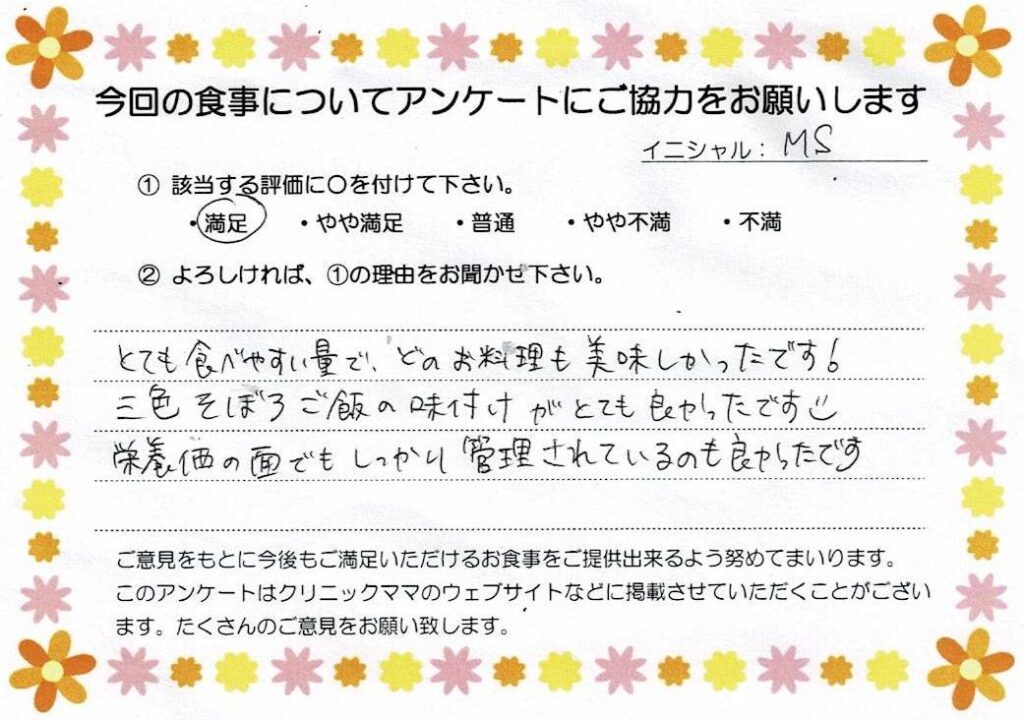 今回の食事についてアンケートにご協力をお願いします
イニシャル： MS
① 該当する評価に〇を付けて下さい。
・満足 ・やや満足 ・普通 ・やや不満 ・不満
② よろしければ、①の理由をお聞かせ下さい。
とても食べやすい量で、どのお料理も美味しかったです！
三色そぼろご飯の味付けがとても良かったです
栄養価の面でもしっかり管理されているのも良かったです
ご意見をもとに今後もご満足いただけるお食事をご提供出来るよう努めてまいります。
このアンケートはクリニックママのウェブサイトなどに掲載させていただくことがござい
ます。たくさんのご意見をお願い致します。